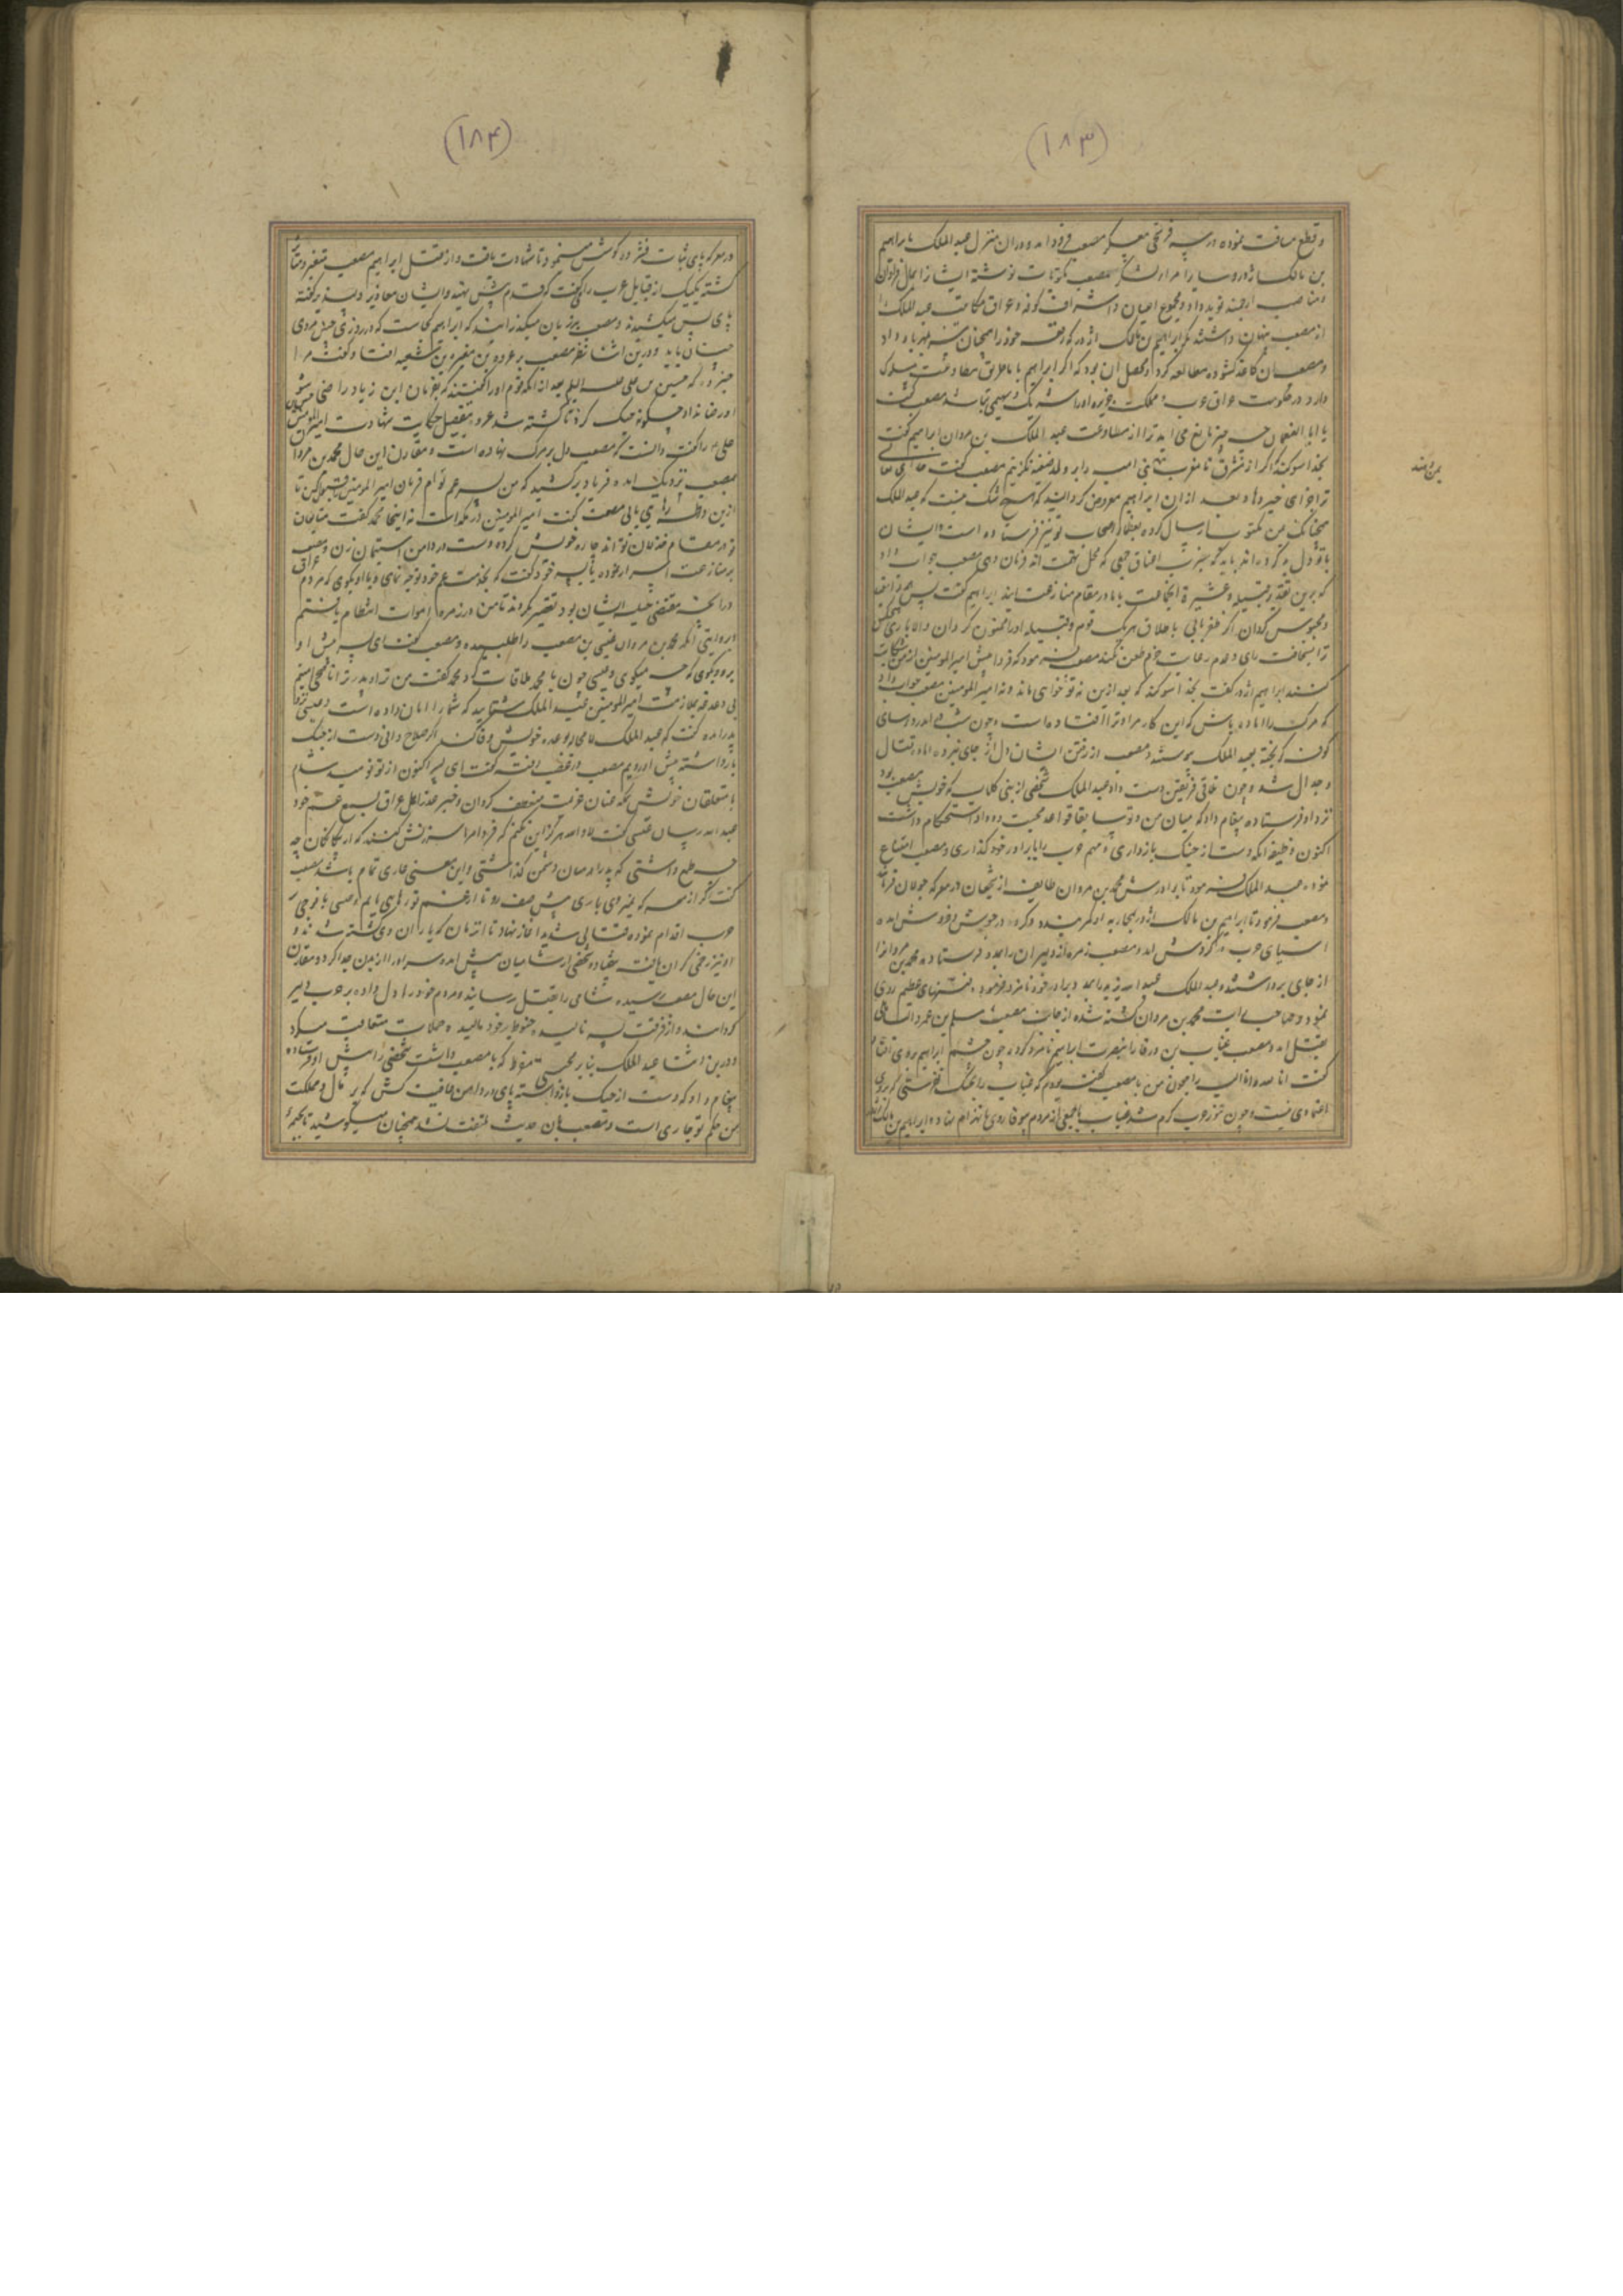 (۱۸۳)
و قطع مسافت نموده در سه فرسخی معسکر مصعب فرود آمد و در آن منزل عبد الملک بابراهیم
بن مالک اژدر و سایر امراء لشکر مصعب مکتوبات نوشته ایشان را بمال فراوان
و مناصب ارجمند نوید داد و مجموع اعیان و اشراف کوفه و عراق مکاتبت عبد الملک را
از مصعب پنهان داشتند مگر ابراهیم بن مالک اژدر که رقعه خود را همچنان سر بمهر باو داد
و مصعب آن کاغذ کشوده مطالعه کرد و محصل آن بود که اگر ابراهیم با ما طریق مطاوعت مسلوک
دارد در حکومت عراق عرب و مملکت جزیره او را شریک و سهیمی نباشد مصعب گفت
یا ابا النعمان چه چیز مانع می آید ترا از مطاوعت عبد الملک بن مروان ابراهیم گفت
بخدا سوگند که اگر از مشرق تا مغرب بنی امیه را بر ولد صفیه نگزینم مصعب گفت خدای تعالی
ترا جزای خیر دهاد و بعد از آن ابراهیم معروض گردانید که هیچ شک نیست که عبد الملک
همچنانکه بمن مکتوب ارسال کرده بعظماء اصحاب تو نیز فرستاده است و ایشان
با تو دل بد کرده اند باید که بضرب اعناق جمعی که محل تهمت اند فرمان دهی مصعب جواب داد
که برین تقدیر قبیله و عشیره آنجماعت با ما در مقام منازعت آیند ابراهیم گفت پس همه را مقید
و محبوس گردان اگر ظفر یابی باطلاق هر یک قوم و قبیله او را ممنون گردان و الا باری هیچکس
ترا بسخافت رای و عدم رعایت حزم طعن نکند مصعب فرمود که فردا پیش امیر المومنین از من شکایت
کنند ابراهیم اژدر گفت بخدا سوگند که بعد ازین نه تو خواهی ماند و نه امیر المومنین مصعب جواب داد
که مرگ را آماده باش که این کار مرا و ترا افتاده است و چون شب در آمد روسای
کوفه گریخته بعبد الملک پیوستند و مصعب از رفتن ایشان دل از جای نبرده آماده قتال
و جدال شد و چون تلاقی فریقین دست داد عبد الملک شخصی از بنی کلاب که خویش مصعب بود
نزد او فرستاده پیغام داد که میان من و تو سابقا قواعد محبت و وداد استحکام داشت
اکنون وظیفه آنکه دست از جنگ بازداری و مهم حرب را با برادر خود گذاری و مصعب امتناع
نمود عبد الملک فرمود تا برادرش محمد بن مروان با طایفه از شجعان در معرکه جولان نمود
و مصعب فرمود تا ابراهیم بن مالک اژدر بمحاربه او کمر بندد و گروه در جوش و خروش آمده
آسیای حرب در گردش آمد و مصعب زمره از دلیران را بمدد فرستاده محمد بن مروان را
از جای برداشتند عبد الملک عبد الله یزید را بمدد برادر خود نامزد فرمود و فتنهای عظیم روی
نمود و صاحب رایت محمد بن مروان کشته شده از جانب مصعب مسلم بن عمرو الباهلی
بقتل آمد و مصعب عتاب بن ورقا را بنصرت ابراهیم نامزد کرد و چون چشم ابراهیم بر وی افتاد
گفت انا لله و انا الیه راجعون من با مصعب گفته بودم که عتاب را بجنگ نفرستی که بر وی
اعتمادی نیست و چون تنور حرب گرم شد عتاب با جمعی از مردم بیوفا روی بانهزام نهاده ابراهیم بن مالک اژدر
(۱۸۴)
در معرکه پای ثبات فشرده کوشش مینمود تا شهادت یافت و از قتل ابراهیم مصعب متغیر و متأثر
گشته یکیک از قبایل عرب را میگفت که قدم پیش نهید و ایشان معاذیر دلپذیر گفته
پای پس میکشیدند و مصعب بر زبان میگذرانید که ابراهیم کجاست که در روزی چنین مردی
چنان باید و درین اثنا نظر مصعب بر عروة بن مغیره بن شعبه افتاد و گفت مرا
خبر ده که حسین بن علی علیه السلم بعد از آنکه قوم او را گفتند که بفرمان ابن زیاد راضی شو
او رضا نداد چگونه جنگ کرد تا کشته شد عروه بتفصیل حکایت شهادت امیر المومنین حسین بن
علی را گفت دانست که مصعب دل بر مرگ نهاده است و مقارن این حال محمد بن مروان
بمصعب نزدیک آمده فریاد برکشید که من پسر عم توام فرمان امیر المومنین قبول کن تا
ازین ورطه رهایی یابی مصعب گفت امیر المومنین در مکه است نه اینجا محمد گفت متابعان
تو در مقام خذلان تواند چاره خویش کرده دست در دامن استیمان زن و مصعب
بر منازعت اصرار نموده با پسر خود گفت که بخدمت عم خود توجه نمای و با او بگوی که مردم عراق
در آنچه مقتضی جبله ایشان بود تقصیر نکردند تا من در زمره اموات انتظام یافتم
بروایتی آنکه محمد بن مروان عیسی بن مصعب را طلبیده و مصعب گفت ای پسر پیش او
برو بگوی که چه میگوی و عیسی چون با محمد ملاقات کرد محمد گفت من ترا و پدر ترا ناصحی امینم
بی دغدغه بملازمت امیر المومنین عبد الملک شتابید که شما را امان داده است و عیسی نزد
پدر آمده گفت که عبد الملک ما می بوعده خویش وفا کند اگر صلاح دانی دست از جنگ
بازداشته پیش او رویم مصعب در غضب رفته گفت ای پسر اکنون از تو نومید شدم
با متعلقان خویش بمکه عنان عزیمت منعطف گردان و خبر غدر اهل عراق بسمع عم خود
عبد الله رسان عیسی گفت لا و الله هرگز این نکنم که فردا مرا سرزنش کنند که از یگانگان چه
چه طمع داشتی که پدر را در میان دشمن گذاشتی و این معنی عاری تمام باشد مصعب
گفت اگر از مکه کوچ نمی دهی باری پیش صف رو تا از غم تو رهایی یابم و عیسی با فوجی از
عرب اقدام نموده قتالی شدید آغاز نهاد تا آنزمان که یاران وی کشته شدند و
او نیز زخمی گران یافته بیفتاد و شخصی از شامیان پیش آمد و سر او را از بدن جدا کرد و مقارن
این حال مصعب رسیده شامی را بقتل رسانید و مردم خود را دل داده بر حرب دلیر
گردانید و از فرقت پسر نالیده حنوط بر خود مالیده و حملات متعاقب میکرد
و درین اثنا عبد الملک بنابر محبتی مفرط که با مصعب داشت شخصی را پیش او فرستاده
پیغام داد که دست از جنگ بازداشته پای در دامن عافیت کش که بر مال و مملکت
من حکم تو جاری است و مصعب بآن حدیث ملتفت نشد همچنان میکوشید تا بحدی